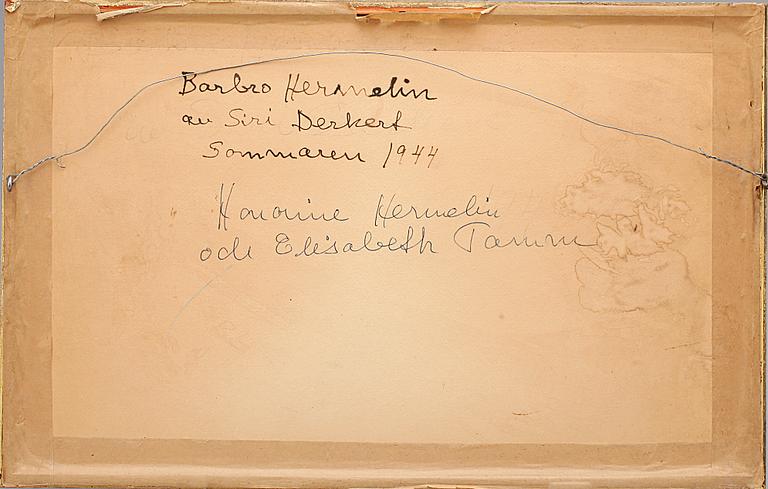 Barbro Hermelin
av Siri Derkert
Sommaren 1944
Honorine Hermelin
och Elisabeth Tamm